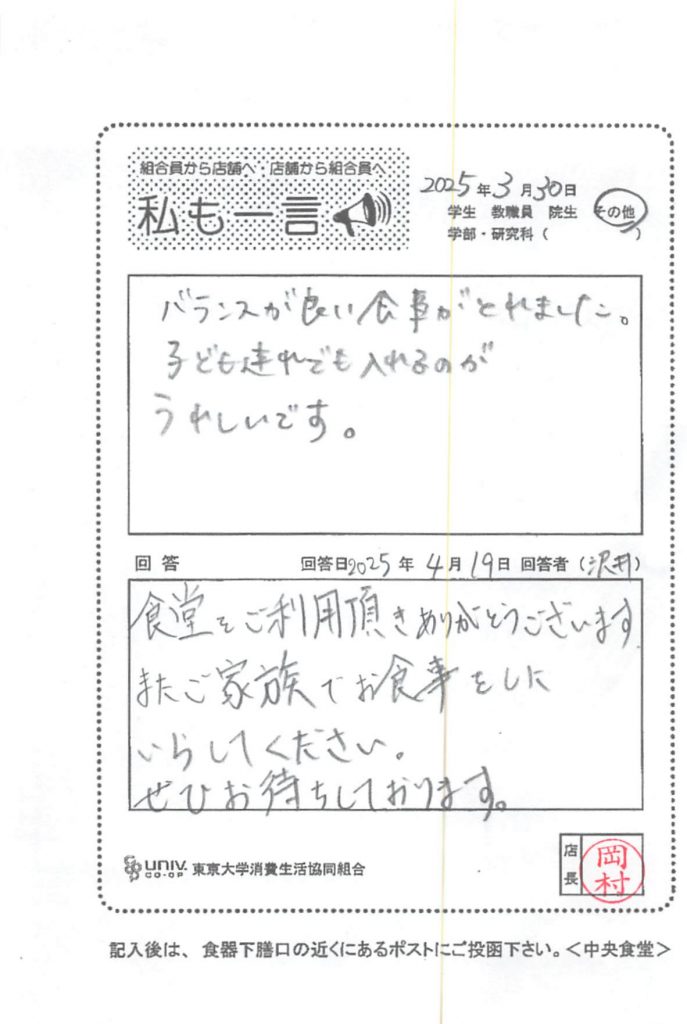 組合員から店舗へ・店舗から組合員へ
私も一言
2025年3月30日
学生 教職員 院生 その他
学部・研究科（ ）
バランスが良い食事がとれました。
子ども連れでも入れるのが
うれしいです。
回答 回答日2025年4月19日 回答者（沢井）
食堂をご利用頂きありがとうございます
またご家族でお食事をしに
いらしてください。
ぜひお待ちしております。
UNIV. CO-OP 東京大学消費生活協同組合
店長 岡村
記入後は、食器下膳口の近くにあるポストにご投函下さい。＜中央食堂＞